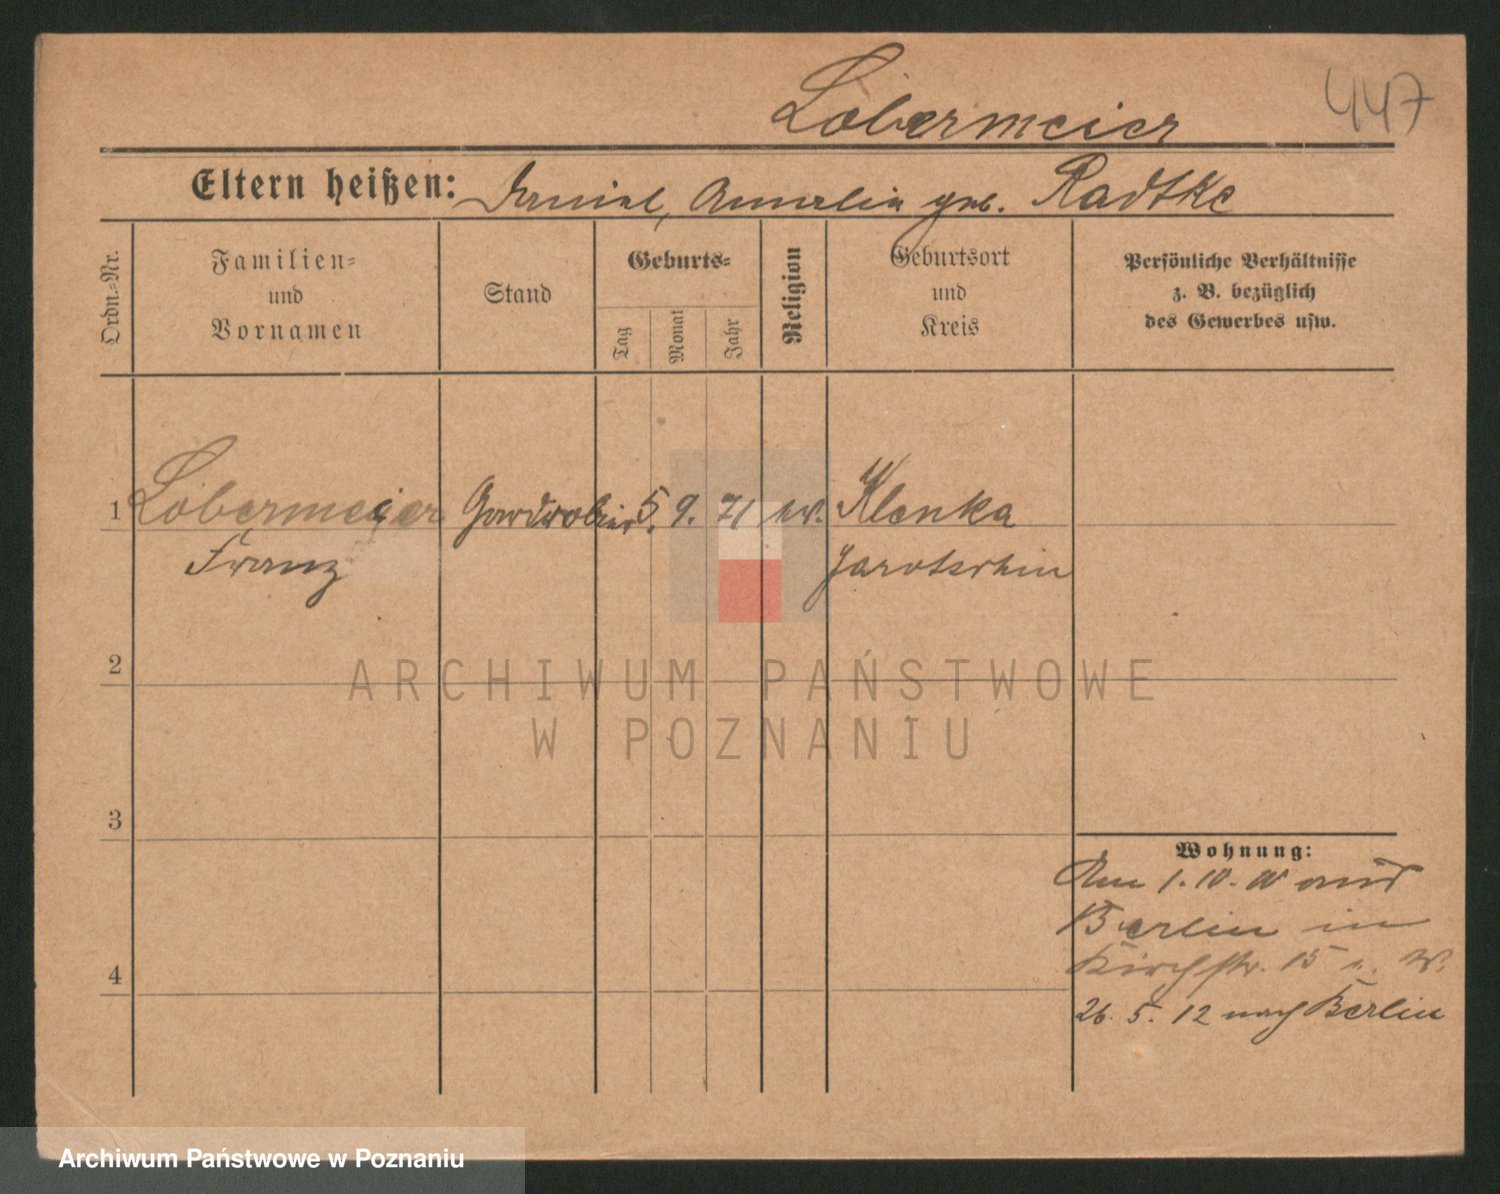 Lobermeier 447
Eltern heißen: Daniel, Annalia geb. Radtke
Ordn.-Nr.
Familien- und Vornamen
Stand
Geburts-
Tag
Monat
Jahr
Religion
Geburtsort und Kreis
Persönliche Verhältnisse
z. B. bezüglich
des Gewerbes usw.
1 Lobermeier Garderobier 5. 9. 71 ev. Klenka
Franz Jarotschin
2
ARCHIWUM PAŃSTWOWE
W POZNANIU
3
Wohnung:
Am 1. 10. aus
Berlin in
Kirchstr. 15
4
26. 5. 12 nach Berlin
Archiwum Państwowe w Poznaniu